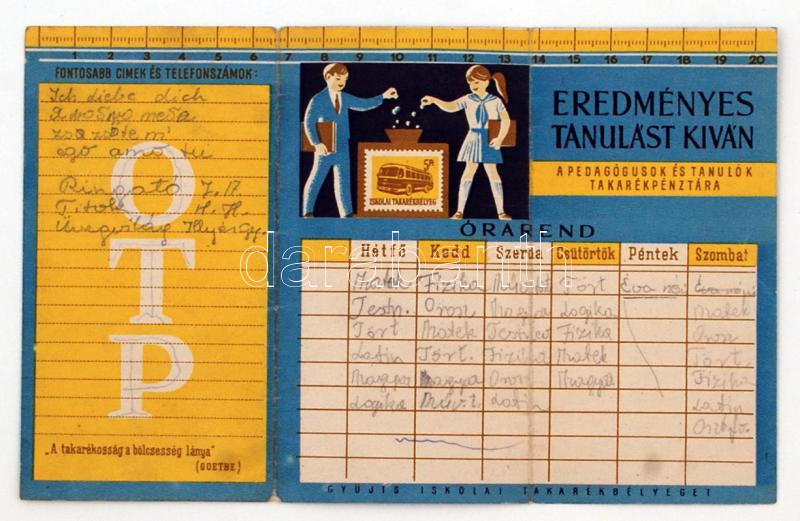 1 2 3 4 5 6 7 8 9 10 11 12 13 14 15 16 17 18 19 20
FONTOSABB CIMEK ÉS TELEFONSZÁMOK:
Ich liebe dich
ego amo tu
OTP
„A takarékosság a bölcsesség lánya"
(GOETHE)
5 Ft
ISKOLAI TAKARÉKBÉLYEG
EREDMÉNYES
TANULÁST KIVÁN
A PEDAGÓGUSOK ÉS TANULÓK
TAKARÉKPÉNZTÁRA
ÓRAREND
Hétfő Kedd Szerda Csütörtök Péntek Szombat
Matek Fizika Tört Éva néni Éva néni
Testn. Orosz Magyar Logika Matek
Tört Matek Testnev Fizika Orosz
Latin Tört. Fizika Matek Tört.
Magyar Magyar Orosz Magyar Fizika
Logika Műv.t. Latin Latin
Osztfő.
GYÜJTS ISKOLAI TAKARÉKBÉLYEGET
darabanth